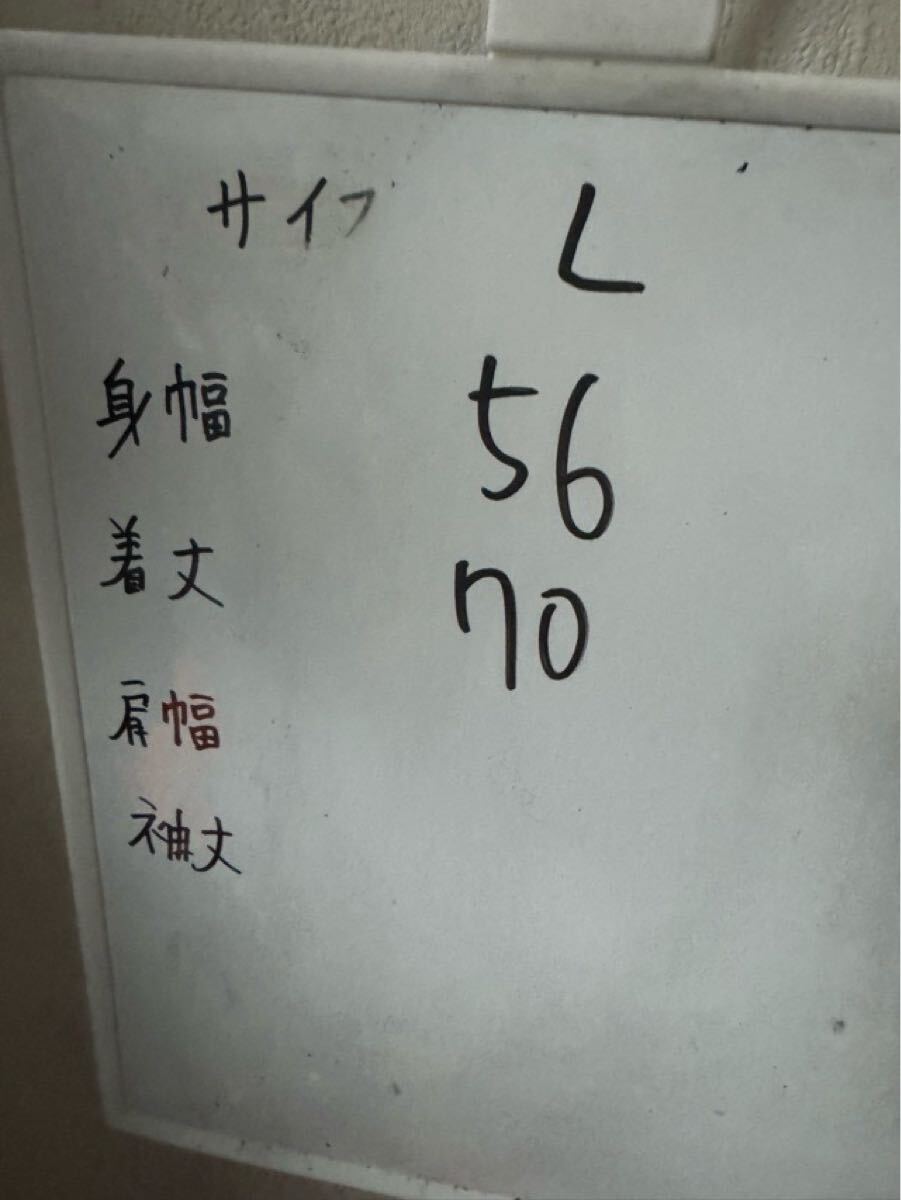 サイズ L
身幅 56
着丈 70
肩幅
袖丈